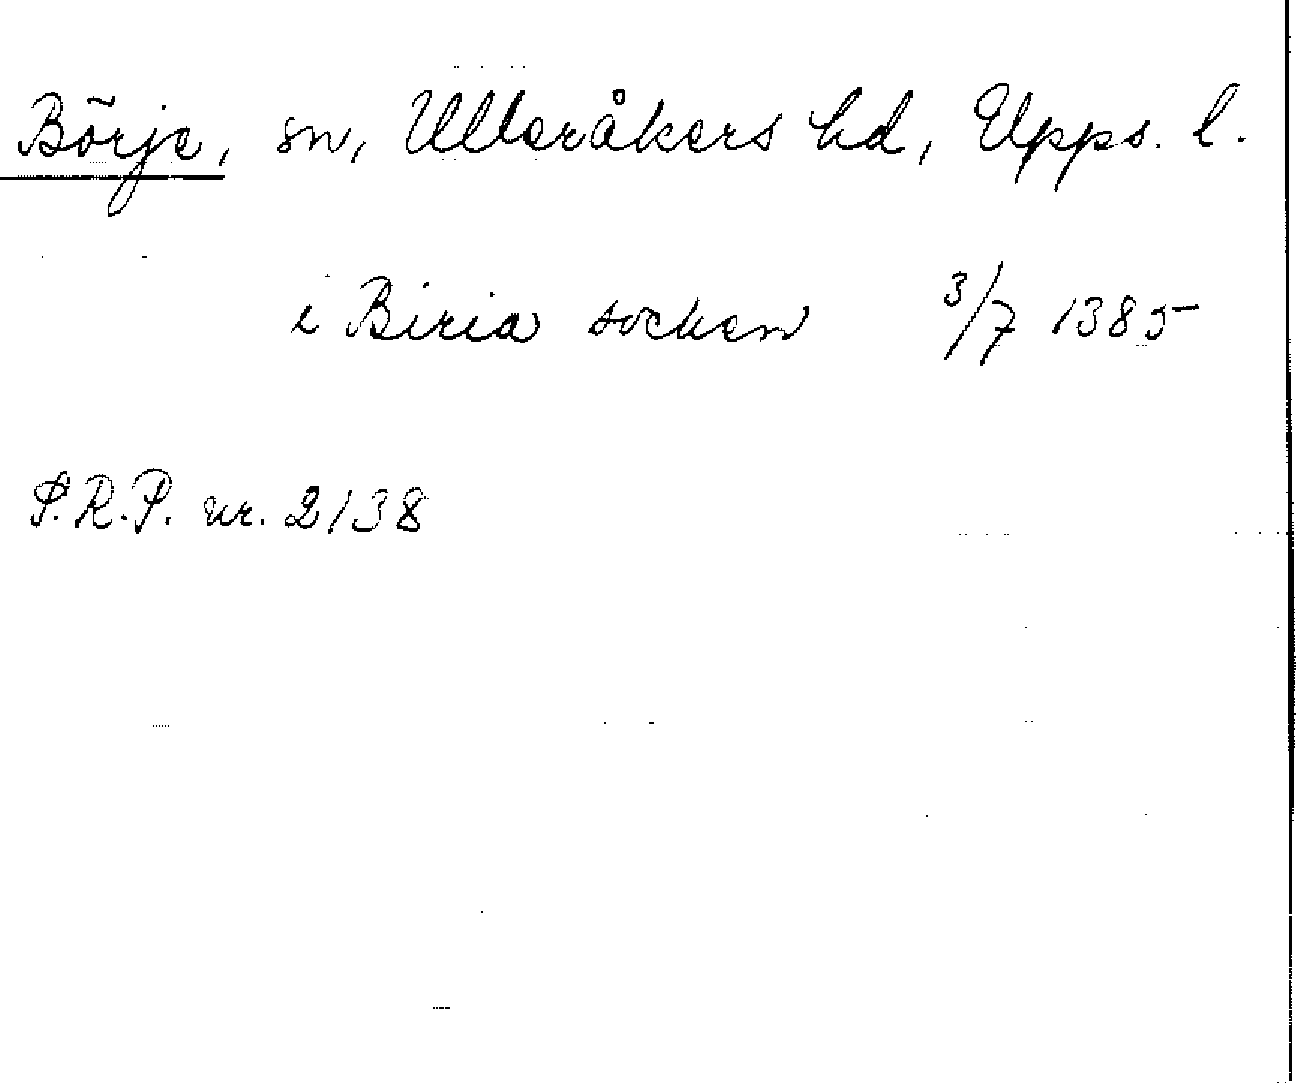 Börje, sn, Ulleråkers hd, Upps. l.
i Biria socken 3/7 1385
S.R.P. nr. 2138